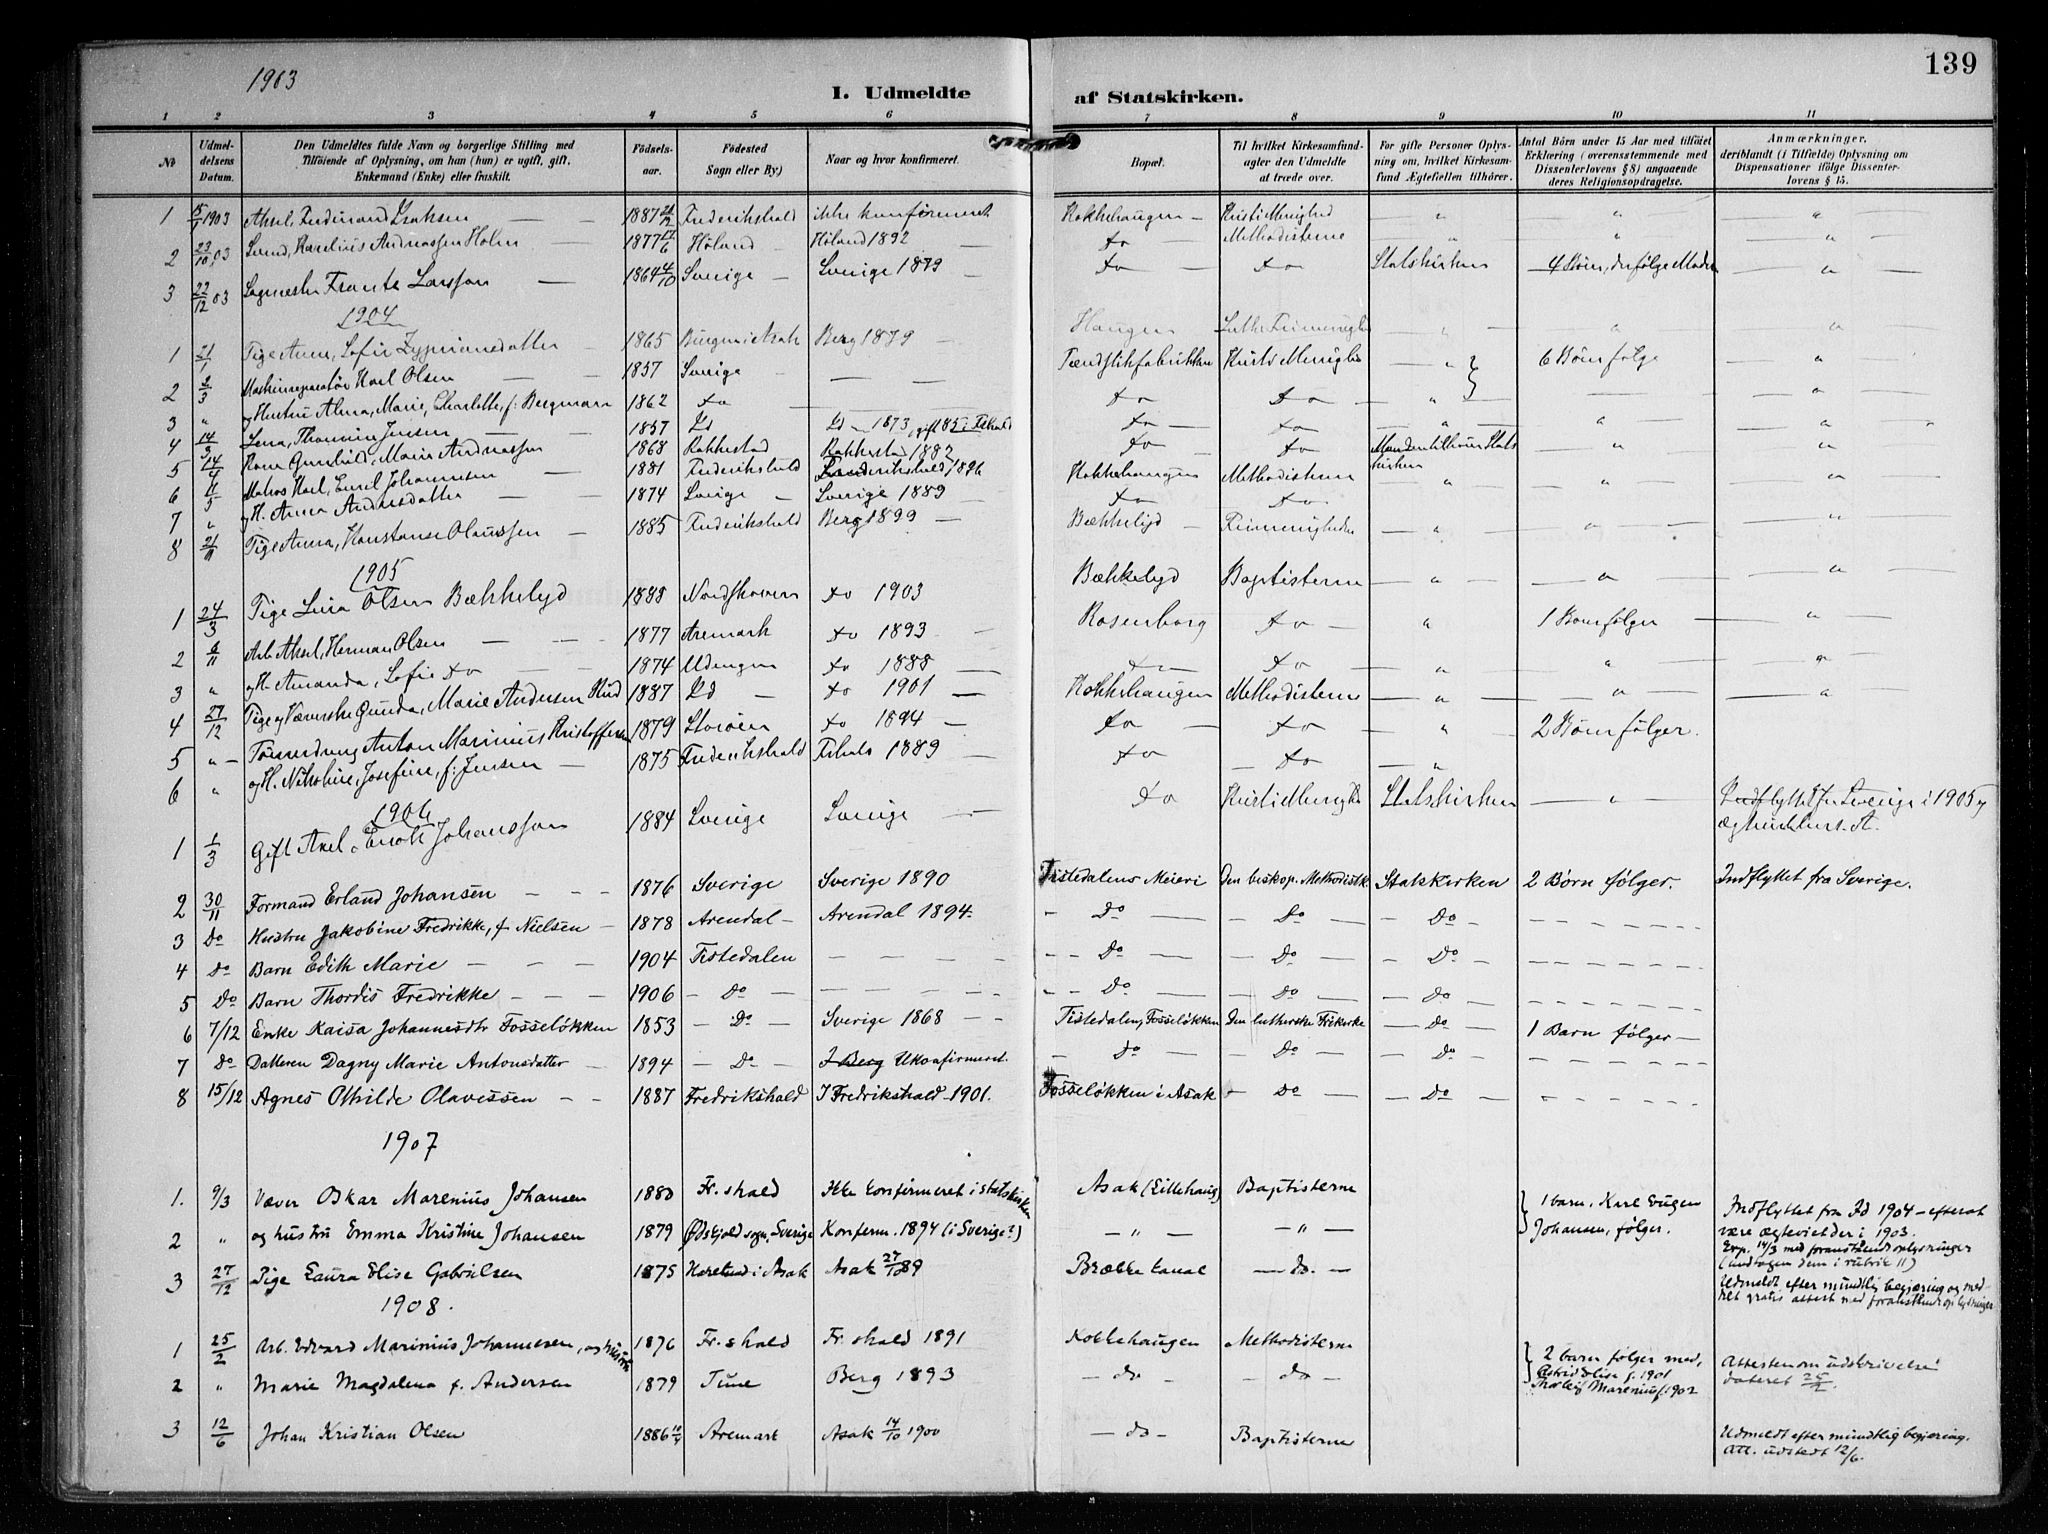 139
1903
I. Udmeldte af Statskirken.
1 2 3 4 5 6 7 8 9 10 11
№ | Udmeldelsens Datum. | Den Udmeldtes fulde Navn og borgerlige Stilling med Tilføiende af Oplysning, om han (hun) er ugift, gift, Enkemand (Enke) eller fraskilt. | Fødselsaar. | Fødested Sogn eller By) | Naar og hvor konfirmeret. | Bopæl. | Til hvilket Kirkesamfund agter den Udmeldte at træde over. | For gifte Personer Oplysning om, hvilket Kirkesamfund Ægtefællen tilhører. | Antal Børn under 15 Aar med tilføiet Erklæring (overensstemmende med Dissenterlovens § 8) angaaende deres Religionsopdragelse. | Anmærkninger, deriblandt (i Tilfælde) Oplysning om Dispensationer ifølge Dissenterlovens § 15.
1 15/1 1903 Aksel, Ferdinand Isaksen — 1887 Frederikshald ikke konfirmeret Kokkehaugen — Kristi Menighed " " "
2 23/10 03 Svend, Karelius Andreassen Holm — 1877 17/6 Høland — Høland 1892 — do — Methodisterne " " "
3 22/12 03 Sagmester Frants Larsson — 1864 4/10 Sverige — Sverige 1879 — do — do — Statskirken — 4 Børn, der følge Moderen "
1904
1 21/1 Pige Anne, Sofie Zypriansdatter — 1865 Asak Berg 1879 — Haugen Luth. Frimenighed — " — " "
2 2/3 Maskinreparatør Karl Olsen — 1857 Sverige — — Tændstikfabrikken Kristi Menighed — " 6 Børn følge "
3 " og Hustru Alma, Marie, Charlotte, f. Bergman 1862 do — — do do — " "
4 14/3 Lena, Thomine Jensen — 1857 Id Id — 1873, gift 85 i Fshald do — do — " " "
5 14/4 Kone Gunhild, Marie Andreassen 1868 Rakkestad Rakkestad 1882 do do Manden tilhører Statskirken " "
6 4/5 Matros Karl, Emil Johannesen 1881 Frederikshald Frederikshald 1896 Kokkehaugen Methodisterne " " "
7 " og H. Anna Andersdatter — 1874 Sverige — Sverige 1889 — do do
8 21/11 Pige Anna, Konstanse Olaussen — 1885 Frederikshald Berg 1899 — Bækkelyd — Frimenigheden — " — " "
1905
1 24/3 Pige Lina Olsen Bækkelyd 1888 do 1903 Bækkelyd Baptisterne — " — " "
2 6/11 Arb. Aksel, Herman Olsen — 1877 Aremark do 1893 — Rosenborg do — " 1 Barn følger — "
3 " og H. Amanda, Sofie do — 1874 do 1888 — do — do " " "
4 27/12 Pige og Væverske Gunda, Marie Andersen 1887 Id — do 1901 — Kokkehaugen Methodisterne — " — " "
5 " — Anton Marinius Kristoffersen 1879 do 1894 — do do — " 2 Børn følger.
6 " og H. Nikoline, Josefine, f. Jensen — 1875 Frederikshald Fshald 1889 — do — do — "
1906
1 1/3 Gift Axel, Enok Johansson 1884 Sverige Sverige — do Kristi Menighed Statskirken — " — Indflyttet fr. Sverige i 1905 og
2 30/11 Formand Erland Johansen — — — 1876 Sverige Sverige 1890 Tistedalens Meieri Den biskop. Methodistk. Statskirken 2 Børn følger. Indflyttet fra Sverige.
3 Do Hustru Jakobine Fredrikke, f. Nielsen — 1878 Arendal — Arendal 1894 — — Do — — Do — — Do — — — — — — —
4 Do Barn Edith Marie — — — 1904 Tistedalen — — — — — — — Do — — Do — — Do — — — — — — —
5 Do Barn Thordis Fredrikke — — — 1906 — Do — — — — — — — — Do — — Do — — Do — — — — — — —
6 7/12 Enke Kaisa Johannesdtr Fosseløkken 1853 — Do — Sverige 1868 — — Tistedalen, Fosseløkken Den lutherske Frikirke — Do — 1 Barn følger —
7 Do Datteren Dagny Marie Antonsdatter — 1894 — Do — I Berg Ukonfirmeret. — Do — — Do — — Do —
8 15/12 Agnes Othilde Olavessen — — 1887 Fredrikshald I Fredrikshald 1901. Fosseløkken i Asak — Do — — Do — — — — — — —
1907
1. 9/3 Væver Oskar Marenius Johansen 1880 Fr.shald Ikke konfirmeret i statskirken Asak (Lillehaug) Baptisterne 1 barn, Karl Eugen Johansen, følger. Indflyttet fra Id 1904 — efterat være ægteviede i 1903. Exp. 14/3 med foranstående oplysninger (undtagen dem i rubrik 11)
2 " og hustru Emma Kristine Johansen 1879 Ødskjold sogn, Sverige Konferm. 1894 (i Sverige?) — " — — " —
3 27/12 Pige Laura Elise Gabrielsen 1875 i Asak Asak 27/10 89 Brække kanal — do. — Udmeldt efter mundtlig begjæring og meddelt gratis attest med foranstående oplysninger
1908.
1 25/2 Arb. Edvard Marinius Johannesen, og hustru 1876 Fr.shald Fr.shald 1891 Kokkehaugen Methodisterne 2 barn følger med, Astrid Elise f. 1901 Thorleif Marenius f. 1902 Attesten om udskrivelse dateret 25/2.
2 " Marie Magdalena f. Andersen 1879 Tune Berg 1893 — do — — do —
3 12/6 Johan Kristian Olsen 1886 Aremark Asak 14/10 1900 — do — Baptisterne Udmeldt efter mundtlig begjæring. Att. udstedt 12/6.